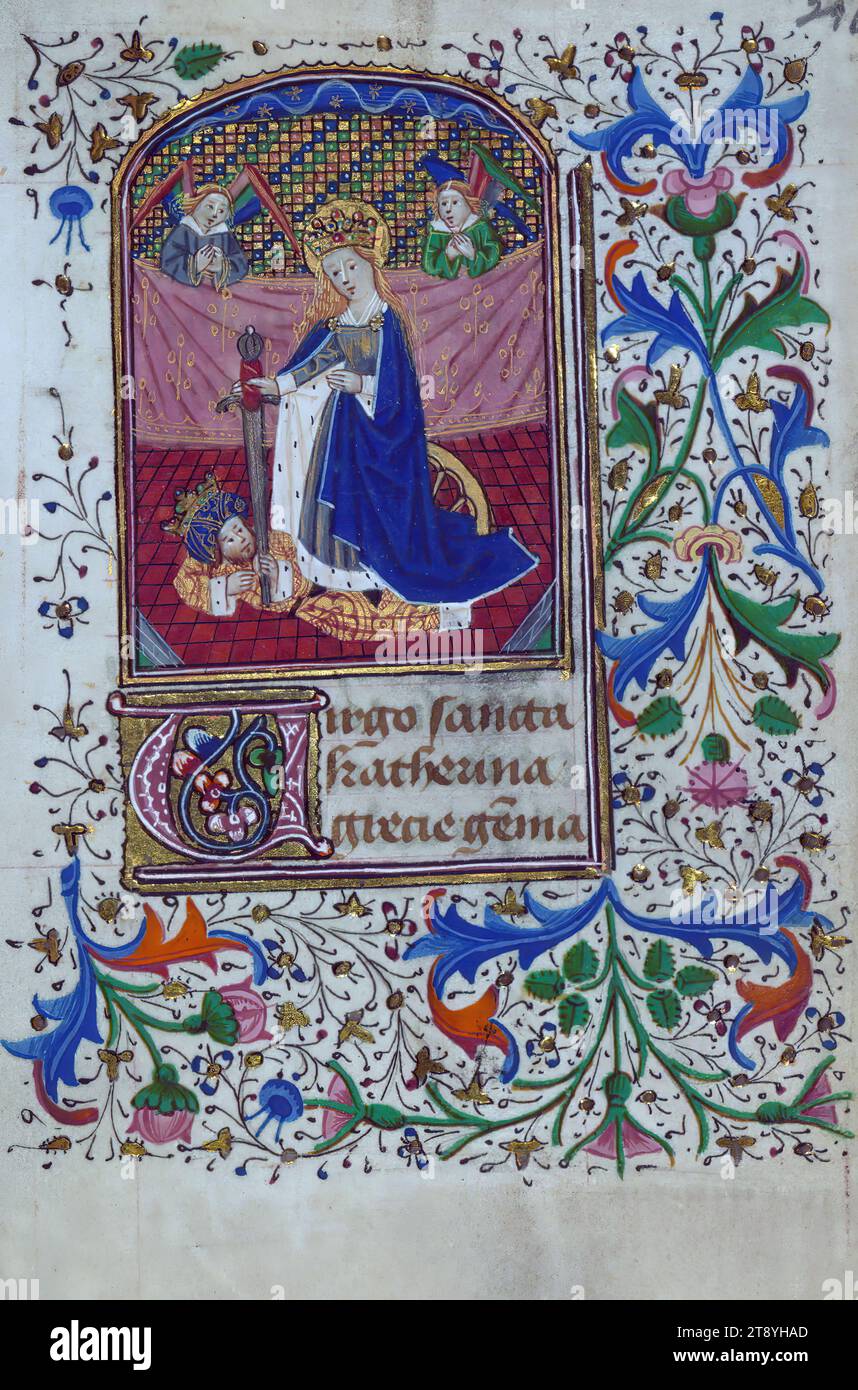 Virgo sancta
katherina
grecie gēma
a
alamy
Image ID: 2T8YHAD
www.alamy.com